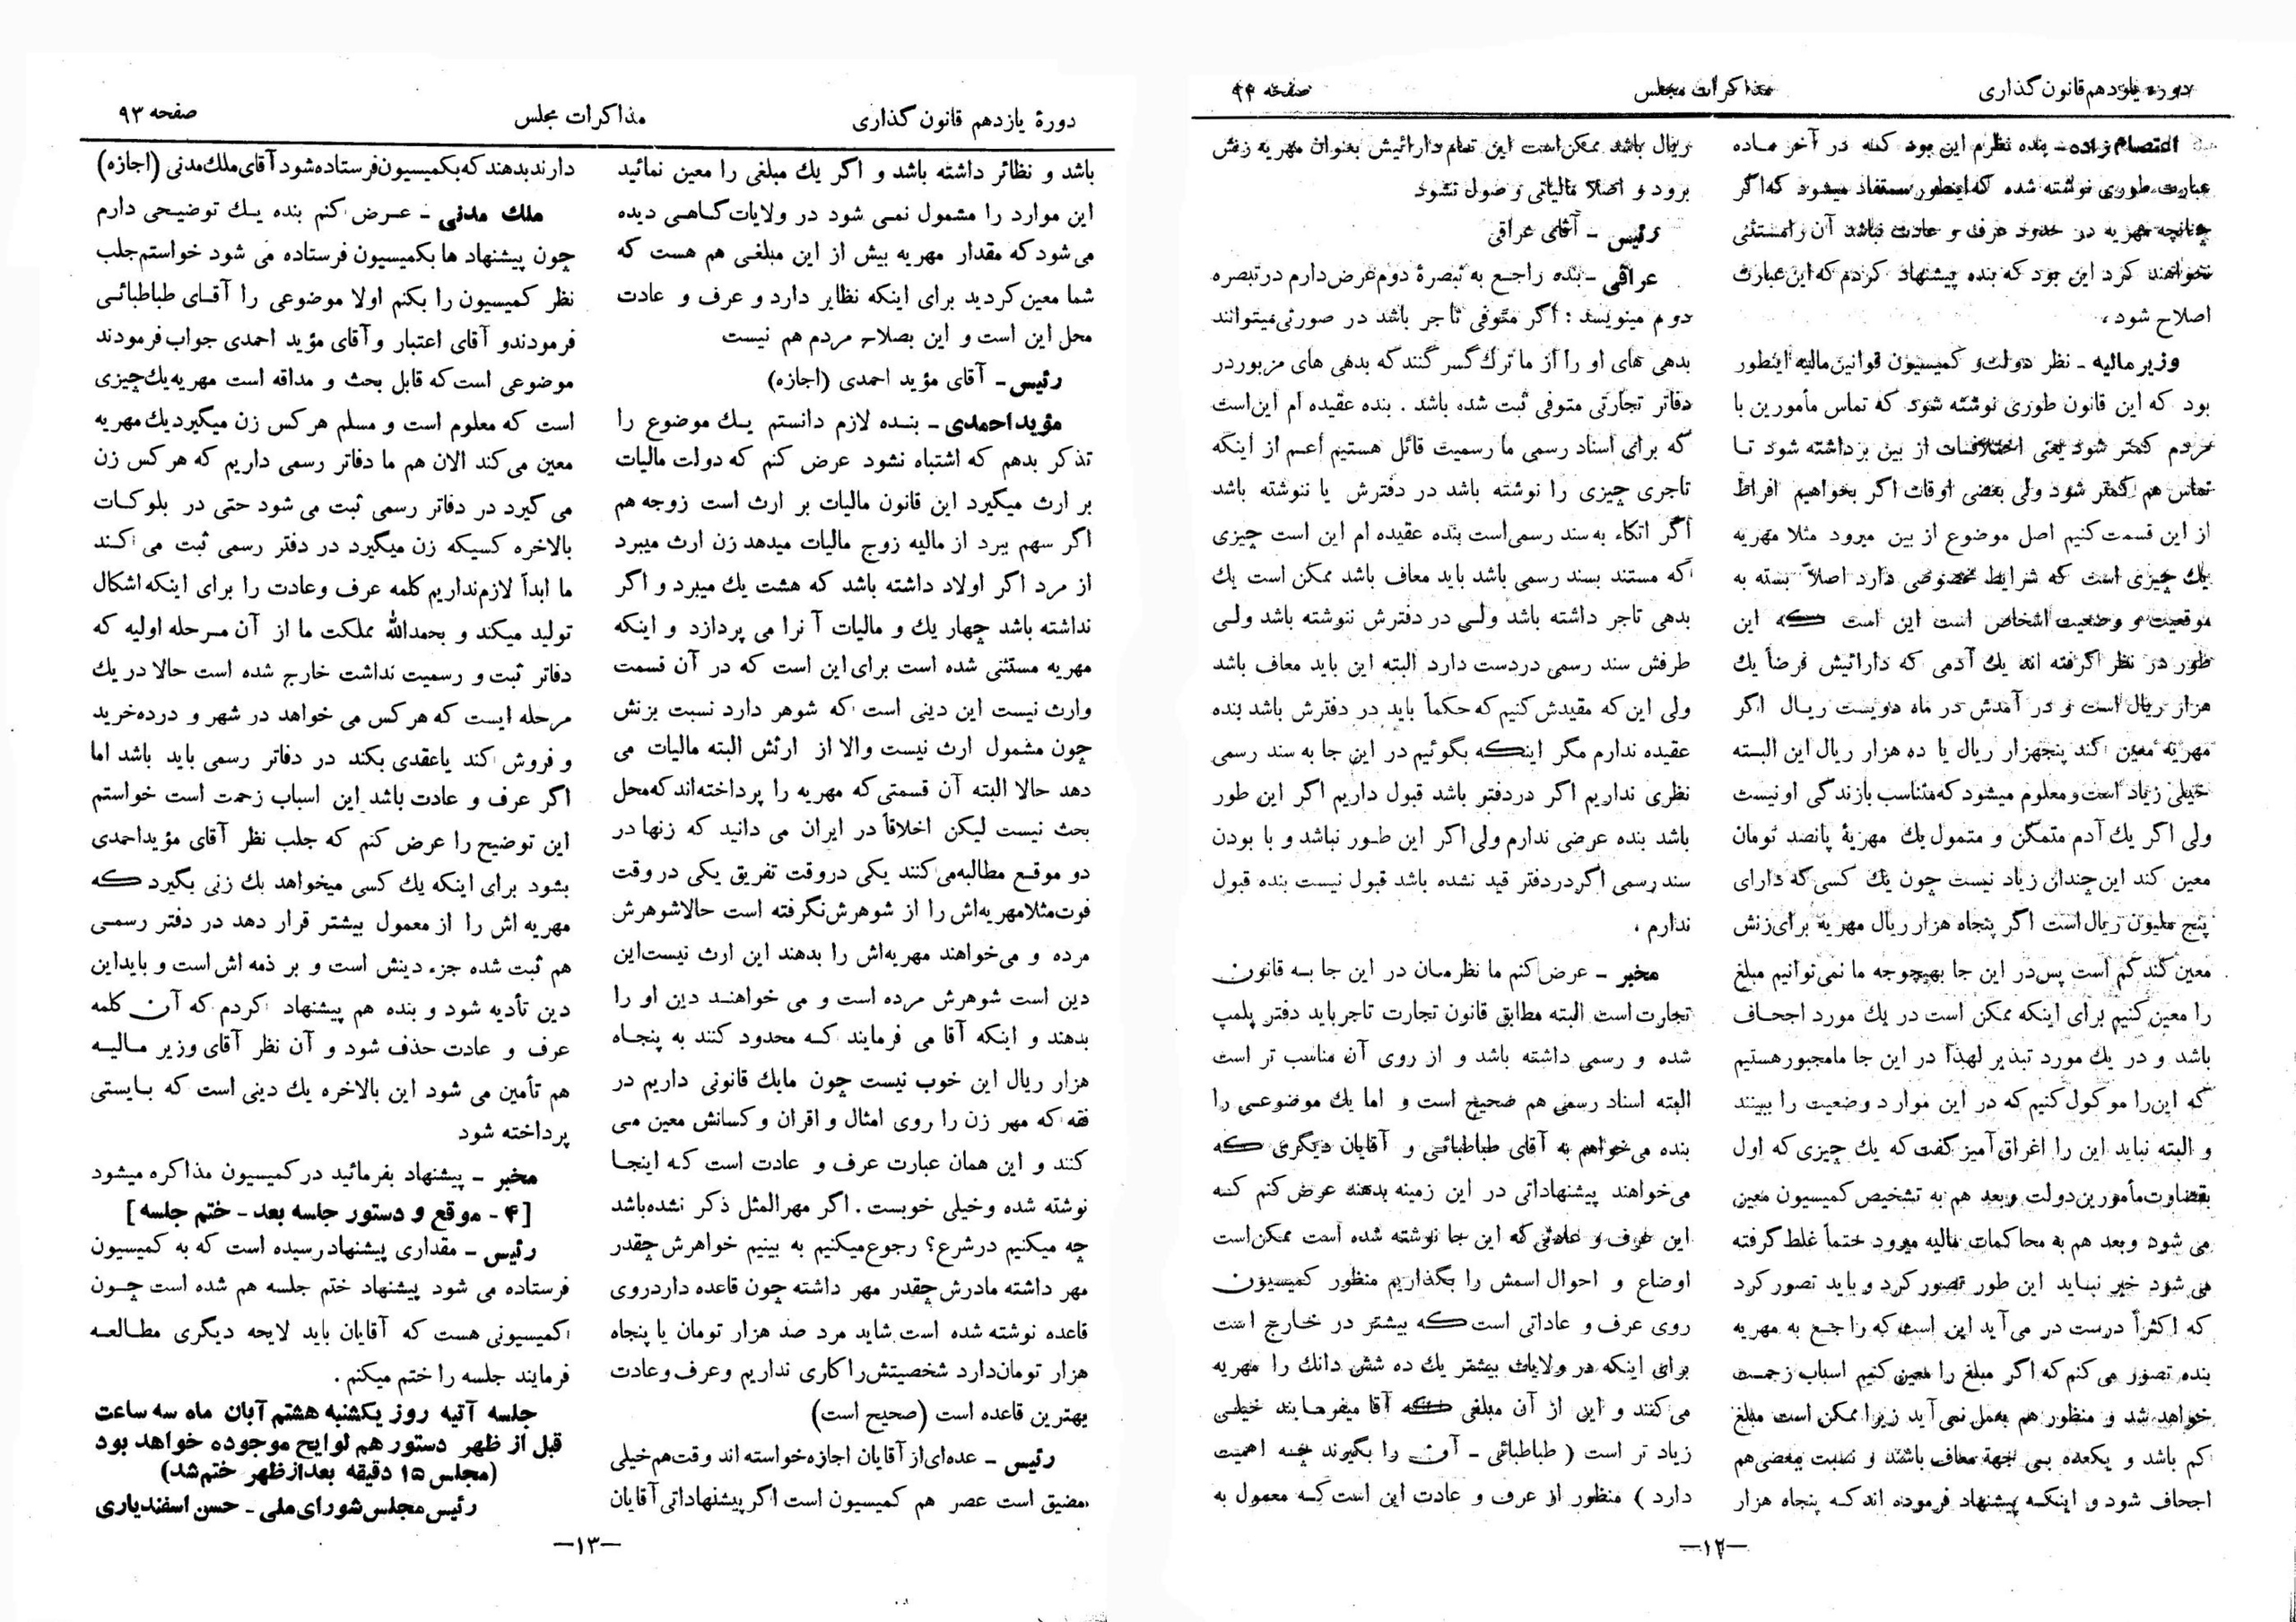 دوره یازدهم قانون گذاری
مذاکرات مجلس
صفحه ۹۲
اعتصام زاده - بنده نظرم این بود که در آخر ماده
عبارت طوری نوشته شده که اینطور مستفاد میشود که اگر
چنانچه مهریه در حدود عرف و عادت نباشد آن را مستثنی
نخواهند کرد این بود که بنده پیشنهاد کردم که این عبارت
اصلاح شود .
وزیر مالیه - نظر دولت و کمیسیون قوانین مالیه اینطور
بود که این قانون طوری نوشته شود که تماس مأمورین با
مردم کمتر شود یعنی اختلافات از بین برداشته شود تا
تماس هم کمتر شود ولی بعضی اوقات اگر بخواهیم افراط
از این قسمت کنیم اصل موضوع از بین میرود مثلا مهریه
یك چیزی است که شرایط مخصوصی دارد اصلاً بسته به
موقعیت و وضعیت اشخاص است این است که این
طور در نظر گرفته اند یك آدمی که دارائیش فرضاً یك
هزار ریال است و در آمدش در ماه دویست ریال اگر
مهریه معین کند پنجهزار ریال یا ده هزار ریال این البته
خیلی زیاد است و معلوم میشود که متناسب بازندگی او نیست
ولی اگر یك آدم متمکن و متمول یك مهریهٔ پانصد تومان
معین کند این چندان زیاد نیست چون یك کسی که دارای
پنج ملیون ریال است اگر پنجاه هزار ریال مهریه برای زنش
معین کند کم است پس در این جا بهیچوجه ما نمی توانیم مبلغ
را معین کنیم برای اینکه ممکن است در یك مورد اجحاف
باشد و در یك مورد تبذیر لهذا در این جا مامجبور هستیم
که این را موکول کنیم که در این موارد وضعیت را ببینند
و البته نباید این را اغراق آمیز گفت که یك چیزی که اول
بقضاوت مأمورین دولت و بعد هم به تشخیص کمیسیون معین
می شود و بعد هم به محاکمات مالیه میرود حتماً غلط گرفته
می شود خیر نباید این طور تصور کرد و باید تصور کرد
که اکثراً درست در می آید این است که راجع به مهریه
بنده تصور می کنم که اگر مبلغ را معین کنیم اسباب زحمت
خواهد شد و منظور هم بعمل نمی آید زیرا ممکن است مبلغ
کم باشد و یکعده بی جهة معاف باشند و نسبت ببعضی هم
اجحاف شود و اینکه پیشنهاد فرموده اند که پنجاه هزار
ریال باشد ممکن است این تمام دارائیش بعنوان مهریه زنش
برود و اصلا مالیاتی وصول نشود
رئیس - آقای عراقی
عراقی - بنده راجع به تبصرهٔ دوم عرض دارم در تبصره
دوم مینویسد : اگر متوفی تاجر باشد در صورتی میتوانند
بدهی های او را از ماترك کسر کنند که بدهی های مزبور در
دفاتر تجارتی متوفی ثبت شده باشد . بنده عقیده ام این است
که برای اسناد رسمی ما رسمیت قائل هستیم اعم از اینکه
تاجری چیزی را نوشته باشد در دفترش یا ننوشته باشد
اگر اتکاء به سند رسمی است بنده عقیده ام این است چیزی
که مستند بسند رسمی باشد باید معاف باشد ممکن است یك
بدهی تاجر داشته باشد ولی در دفترش ننوشته باشد ولی
طرفش سند رسمی دردست دارد البته این باید معاف باشد
ولی این که مقیدش کنیم که حکماً باید در دفترش باشد بنده
عقیده ندارم مگر اینکه بگوئیم در این جا به سند رسمی
نظری نداریم اگر دردفتر باشد قبول داریم اگر این طور
باشد بنده عرضی ندارم ولی اگر این طور نباشد و با بودن
سند رسمی اگر دردفتر قید نشده باشد قبول نیست بنده قبول
ندارم .
مخبر - عرض کنم ما نظرمان در این جا به قانون
تجارت است البته مطابق قانون تجارت تاجر باید دفتر پلمپ
شده و رسمی داشته باشد و از روی آن مناسب تر است
البته اسناد رسمی هم صحیح است و اما یك موضوعی را
بنده می خواهم به آقای طباطبائی و آقایان دیگری که
می خواهند پیشنهاداتی در این زمینه بدهند عرض کنم که
این عرف و عادتی که این جا نوشته شده است ممکن است
اوضاع و احوال اسمش را بگذاریم منظور کمیسیون
روی عرف و عاداتی است که بیشتر در خارج است
برای اینکه در ولایات بیشتر یك ده شش دانك را مهریه
می کنند و این از آن مبلغی که آقا میفرمایند خیلی
زیاد تر است ( طباطبائی - آن را بگیرند چه اهمیت
دارد ) منظور از عرف و عادت این است که معمول به
-۱۲-
دورهٔ یازدهم قانون گذاری
مذاکرات مجلس
صفحه ۹۳
باشد و نظائر داشته باشد و اگر یك مبلغی را معین نمائید
این موارد را مشمول نمی شود در ولایات گاهی دیده
می شود که مقدار مهریه بیش از این مبلغی هم هست که
شما معین کردید برای اینکه نظایر دارد و عرف و عادت
محل این است و این بصلاح مردم هم نیست
رئیس - آقای مؤید احمدی (اجازه)
مؤید احمدی - بنده لازم دانستم یك موضوع را
تذکر بدهم که اشتباه نشود عرض کنم که دولت مالیات
بر ارث میگیرد این قانون مالیات بر ارث است زوجه هم
اگر سهم ببرد از مالیه زوج مالیات میدهد زن ارث میبرد
از مرد اگر اولاد داشته باشد که هشت یك میبرد و اگر
نداشته باشد چهار یك و مالیات آنرا می پردازد و اینکه
مهریه مستثنی شده است برای این است که در آن قسمت
وارث نیست این دینی است که شوهر دارد نسبت بزنش
چون مشمول ارث نیست والا از ارثش البته مالیات می
دهد حالا البته آن قسمتی که مهریه را پرداخته‌اند که محل
بحث نیست لیکن اخلاقاً در ایران می دانید که زنها در
دو موقع مطالبه می کنند یکی دروقت تفریق یکی در وقت
فوت مثلا مهریه‌اش را از شوهرش نگرفته است حالا شوهرش
مرده و می خواهند مهریه‌اش را بدهند این ارث نیست این
دین است شوهرش مرده است و می خواهند دین او را
بدهند و اینکه آقا می فرمایند که محدود کنند به پنجاه
هزار ریال این خوب نیست چون مایك قانونی داریم در
فقه که مهر زن را روی امثال و اقران و کسانش معین می
کنند و این همان عبارت عرف و عادت است که اینجا
نوشته شده و خیلی خوبست . اگر مهرالمثل ذکر نشده باشد
چه میکنیم درشرع؟ رجوع میکنیم به بینیم خواهرش چقدر
مهر داشته مادرش چقدر مهر داشته چون قاعده دارد روی
قاعده نوشته شده است شاید مرد صد هزار تومان یا پنجاه
هزار تومان دارد شخصیتش را کاری نداریم و عرف و عادت
بهترین قاعده است (صحیح است)
رئیس - عده‌ای از آقایان اجازه خواسته اند وقت هم خیلی
مضیق است عصر هم کمیسیون است اگر پیشنهاداتی آقایان
دارند بدهند که بکمیسیون فرستاده شود آقای ملك مدنی (اجازه)
ملك مدنی - عرض کنم بنده یك توضیحی دارم
چون پیشنهاد ها بکمیسیون فرستاده می شود خواستم جلب
نظر کمیسیون را بکنم اولا موضوعی را آقای طباطبائی
فرمودند و آقای اعتبار و آقای مؤید احمدی جواب فرمودند
موضوعی است که قابل بحث و مداقه است مهریه یك چیزی
است که معلوم است و مسلم هر کس زن میگیرد یك مهریه
معین می کند الان هم ما دفاتر رسمی داریم که هر کس زن
می گیرد در دفاتر رسمی ثبت می شود حتی در بلوکات
بالاخره کسیکه زن میگیرد در دفتر رسمی ثبت می کند
ما ابداً لازم نداریم کلمه عرف وعادت را برای اینکه اشکال
تولید میکند و بحمدالله مملکت ما از آن مرحله اولیه که
دفاتر ثبت و رسمیت نداشت خارج شده است حالا در یك
مرحله ایست که هر کس می خواهد در شهر و درده خرید
و فروش کند یاعقدی بکند در دفاتر رسمی باید باشد اما
اگر عرف و عادت باشد این اسباب زحمت است خواستم
این توضیح را عرض کنم که جلب نظر آقای مؤید احمدی
بشود برای اینکه یك کسی میخواهد یك زنی بگیرد که
مهریه اش را از معمول بیشتر قرار دهد در دفتر رسمی
هم ثبت شده جزء دینش است و بر ذمه اش است و باید این
دین تأدیه شود و بنده هم پیشنهاد کردم که آن کلمه
عرف و عادت حذف شود و آن نظر آقای وزیر مالیه
هم تأمین می شود این بالاخره یك دینی است که بایستی
پرداخته شود
مخبر - پیشنهاد بفرمائید در کمیسیون مذاکره میشود
[۴ - موقع و دستور جلسه بعد - ختم جلسه]
رئیس - مقداری پیشنهاد رسیده است که به کمیسیون
فرستاده می شود پیشنهاد ختم جلسه هم شده است چون
کمیسیونی هست که آقایان باید لایحه دیگری مطالعه
فرمایند جلسه را ختم میکنم .
جلسه آتیه روز یکشنبه هشتم آبان ماه سه ساعت
قبل از ظهر دستور هم لوایح موجوده خواهد بود
(مجلس ۱۵ دقیقه بعد از ظهر ختم شد)
رئیس مجلس شورای ملی - حسن اسفندیاری
-۱۳-